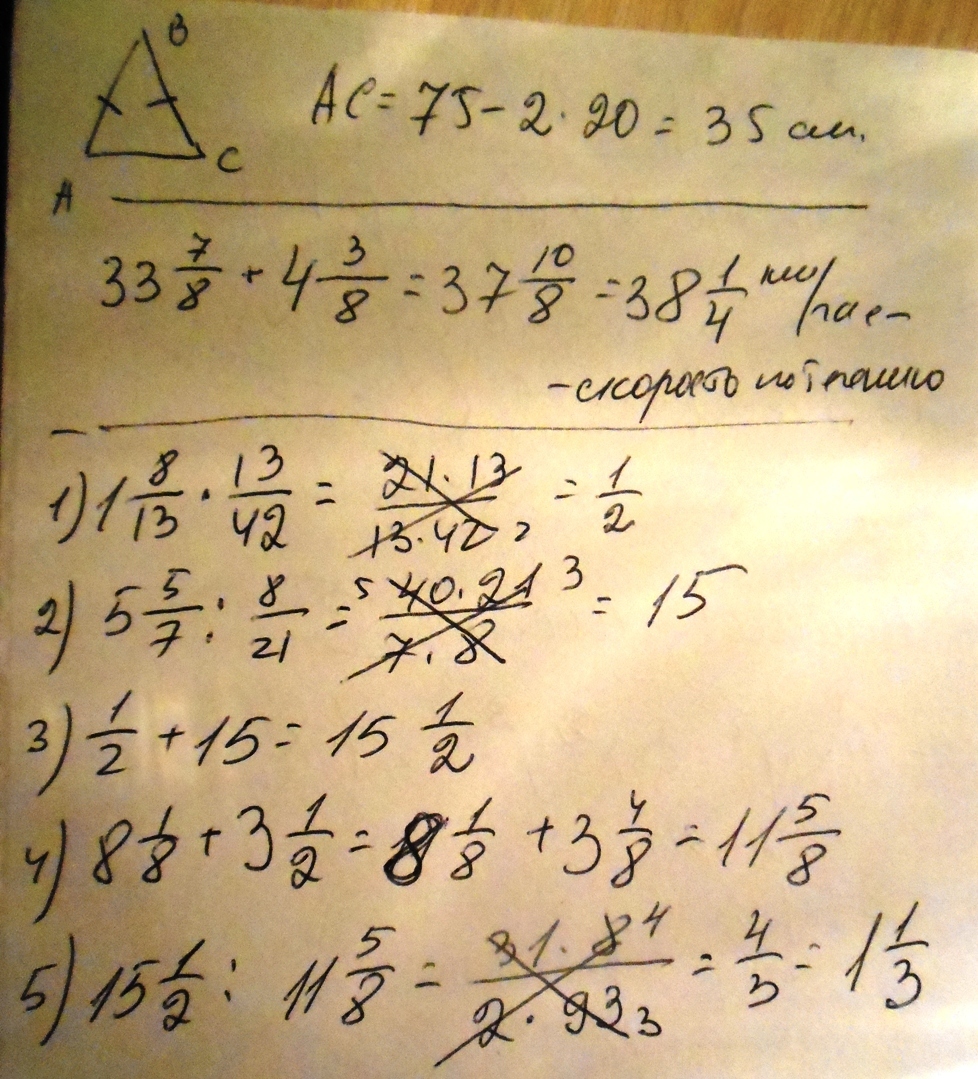 B
A
C
AC = 75 - 2 · 20 = 35 см.
33 7/8 + 4 3/8 = 37 10/8 = 38 1/4 км/час -
- скорость по течению
1) 1 8/13 · 13/42 = 21·13/13·42 2 = 1/2
2) 5 5/7 : 8/21 = 5 40·21 3/7·8 = 15
3) 1/2 + 15 = 15 1/2
4) 8 1/8 + 3 1/2 = 8 1/8 + 3 4/8 = 11 5/8
5) 15 1/2 : 11 5/8 = 31·8 4/2·93 3 = 4/3 = 1 1/3